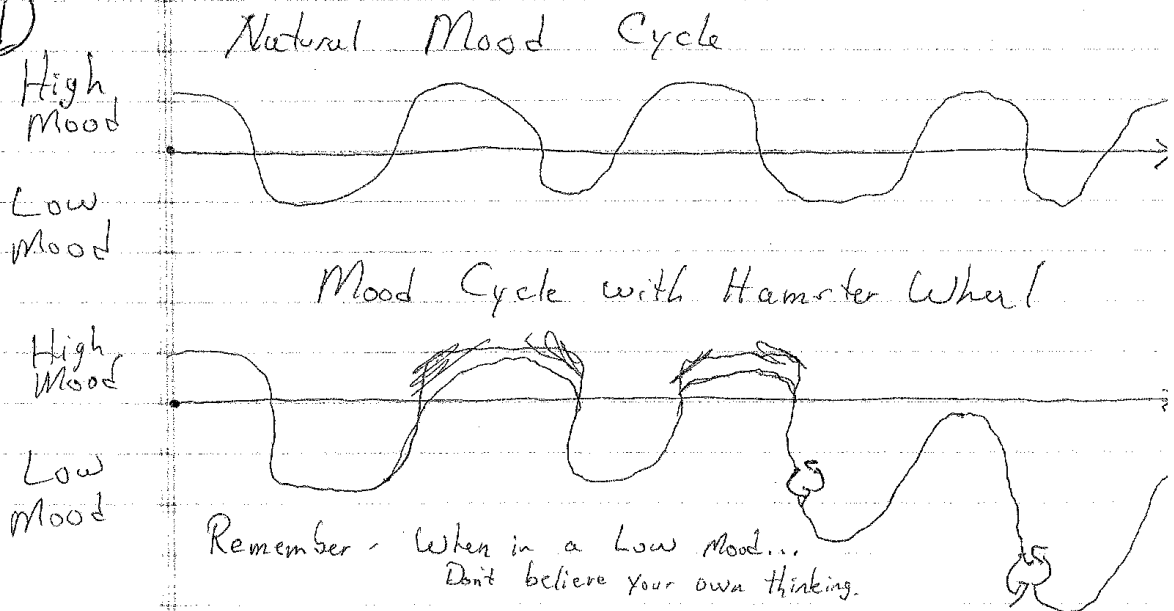 1)
Natural Mood Cycle
High
Mood
Low
Mood
Mood Cycle with Hamster Wheel
High
Mood
Low
Mood
Remember - When in a Low Mood...
Don't believe your own thinking.